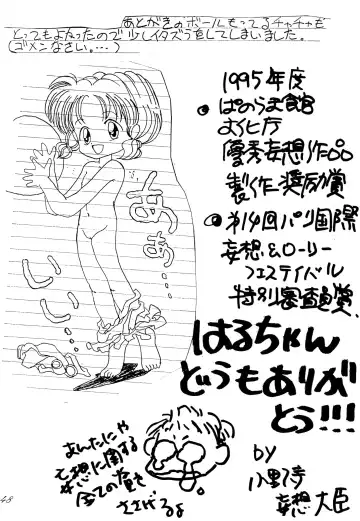 あとがきのボールもってるチャチャも
とってもよかったので少しイタズラをしてしまいました。
(ゴメンなさい。…)
1995年度
ぱのらま館
優秀妄想作品
製作奨励賞
第14回パリ国際
妄想&ローリー
フェスティバル
特別審査員賞、
はるちゃん
どうもありが
とう!!!
by
妄想大臣
あぁ…
いい
あんたにゃ
妄想に関する
全ての賞を
ささげるよ
48